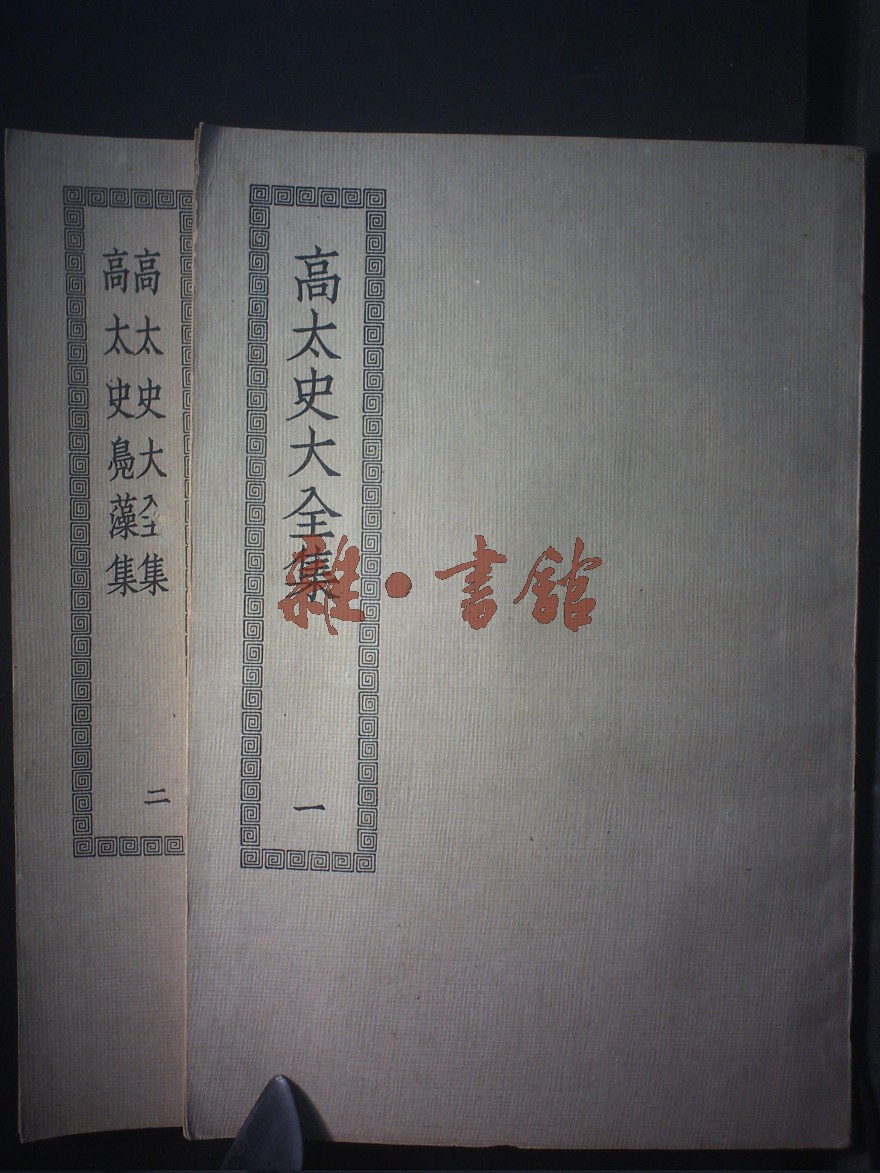 高太史大全集
一
高太史大全集
高太史鳧藻集
二
雜·書館